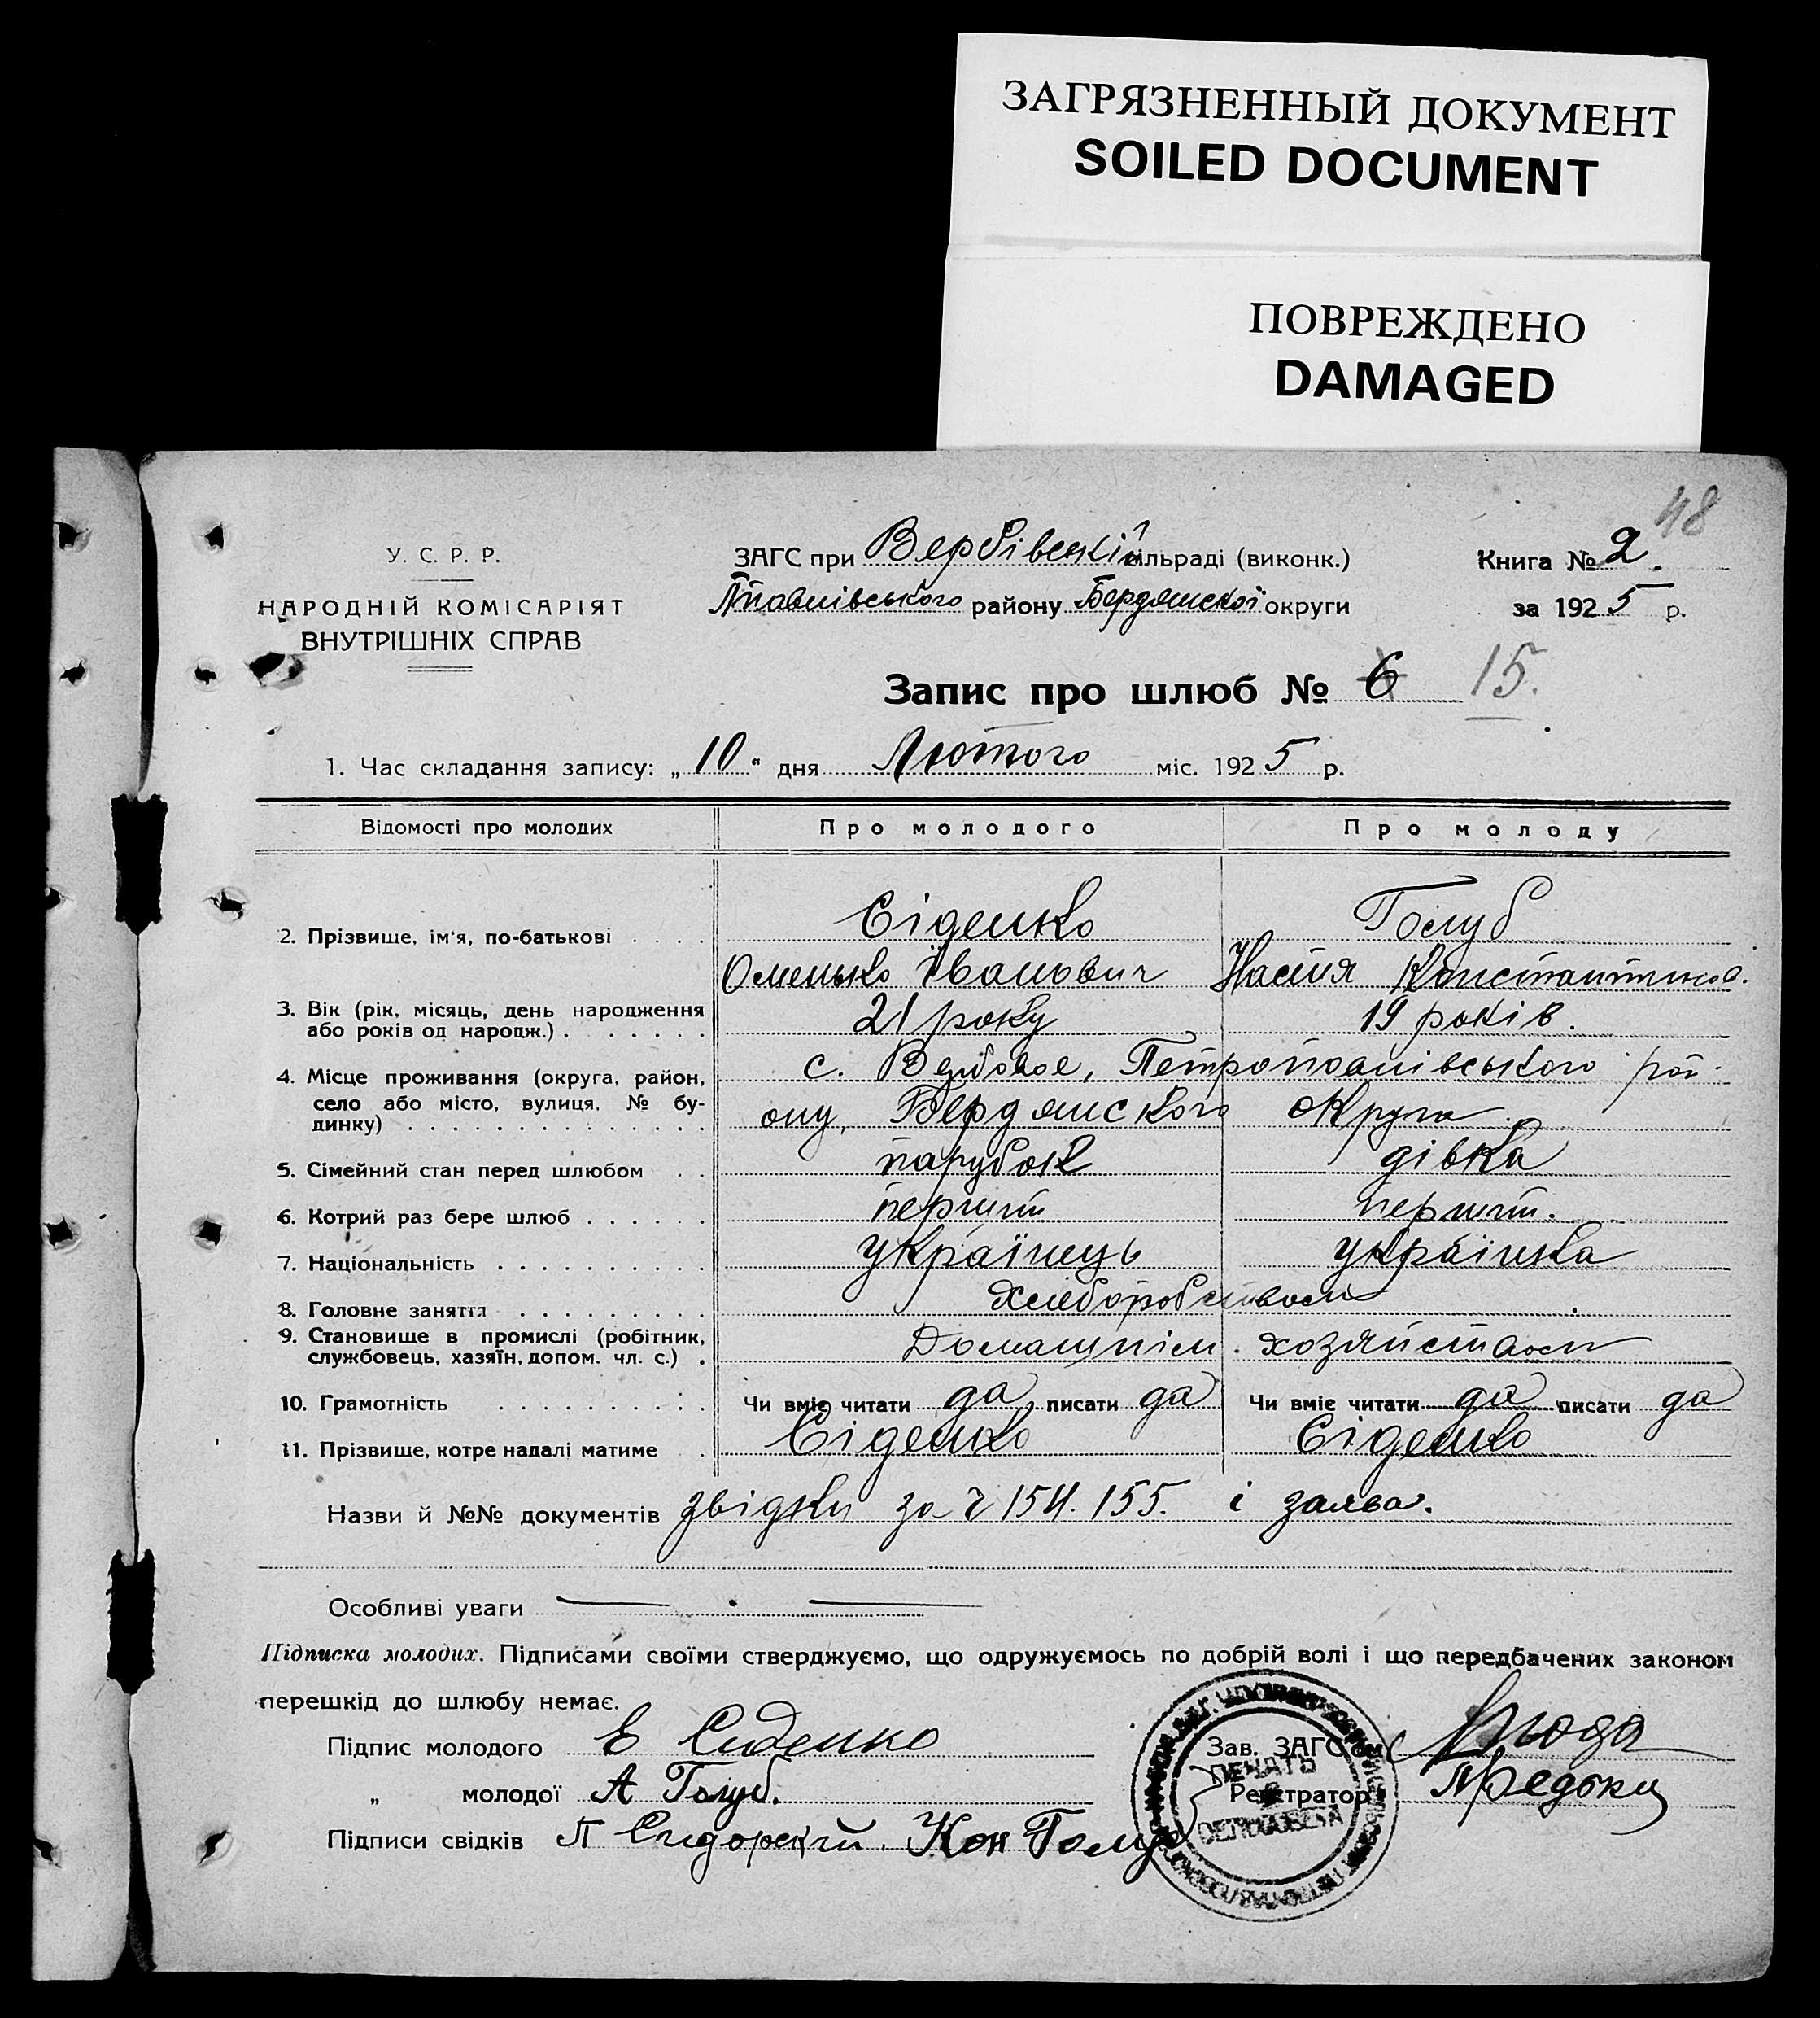 ЗАГРЯЗНЕННЫЙ ДОКУМЕНТ
SOILED DOCUMENT
ПОВРЕЖДЕНО
DAMAGED
48
У. С. Р. Р.
НАРОДНІЙ КОМІСАРІЯТ
ВНУТРІШНІХ СПРАВ
ЗАГС при Вербівській сільраді (виконк.)
району Бердянської округи
Книга № 2.
за 1925 р.
Запис про шлюб № 6 15.
1. Час складання запису: „10" дня Лютого міс. 1925 р.
Відомості про молодих Про молодого Про молоду
2. Прізвище, ім'я, по-батькові . . . . Сіденко Голуб
Омелько Іванович Настя Константинов.
3. Вік (рік, місяць, день народження
або років од народж.) . . . . . . 21 року 19 років.
4. Місце проживання (округа, район,
село або місто, вулиця, № бу-
динку) . . . . . . . . . . . . . .
с. Вербовое, Петропавлівського рай-
ону, Бердянского округа.
5. Сімейний стан перед шлюбом . . парубок дівка
6. Котрий раз бере шлюб . . . . . . перший перший.
7. Національність . . . . . . . . . . українець українка
8. Головне заняття . . . . . . . . . Хлеборобством
9. Становище в промислі (робітник,
службовець, хазяїн, допом. чл. с.) . Домашнім. хозяйством
10. Грамотність . . . . . . . . . . Чи вміє читати да, писати да Чи вміє читати да писати да
11. Прізвище, котре надалі матиме . Сіденко Сіденко
Назви й №№ документів звідки за ч 154. 155. і заява.
Особливі уваги
Підписка молодих. Підписами своїми стверджуємо, що одружуємось по добрій волі і що передбачених законом
перешкід до шлюбу немає.
Підпис молодого Е Сиденко
„ молодої А Голуб.
Підписи свідків П Кон Голуб
Зав. ЗАГС'ом
Реєстратор
ПЕЧАТЬ